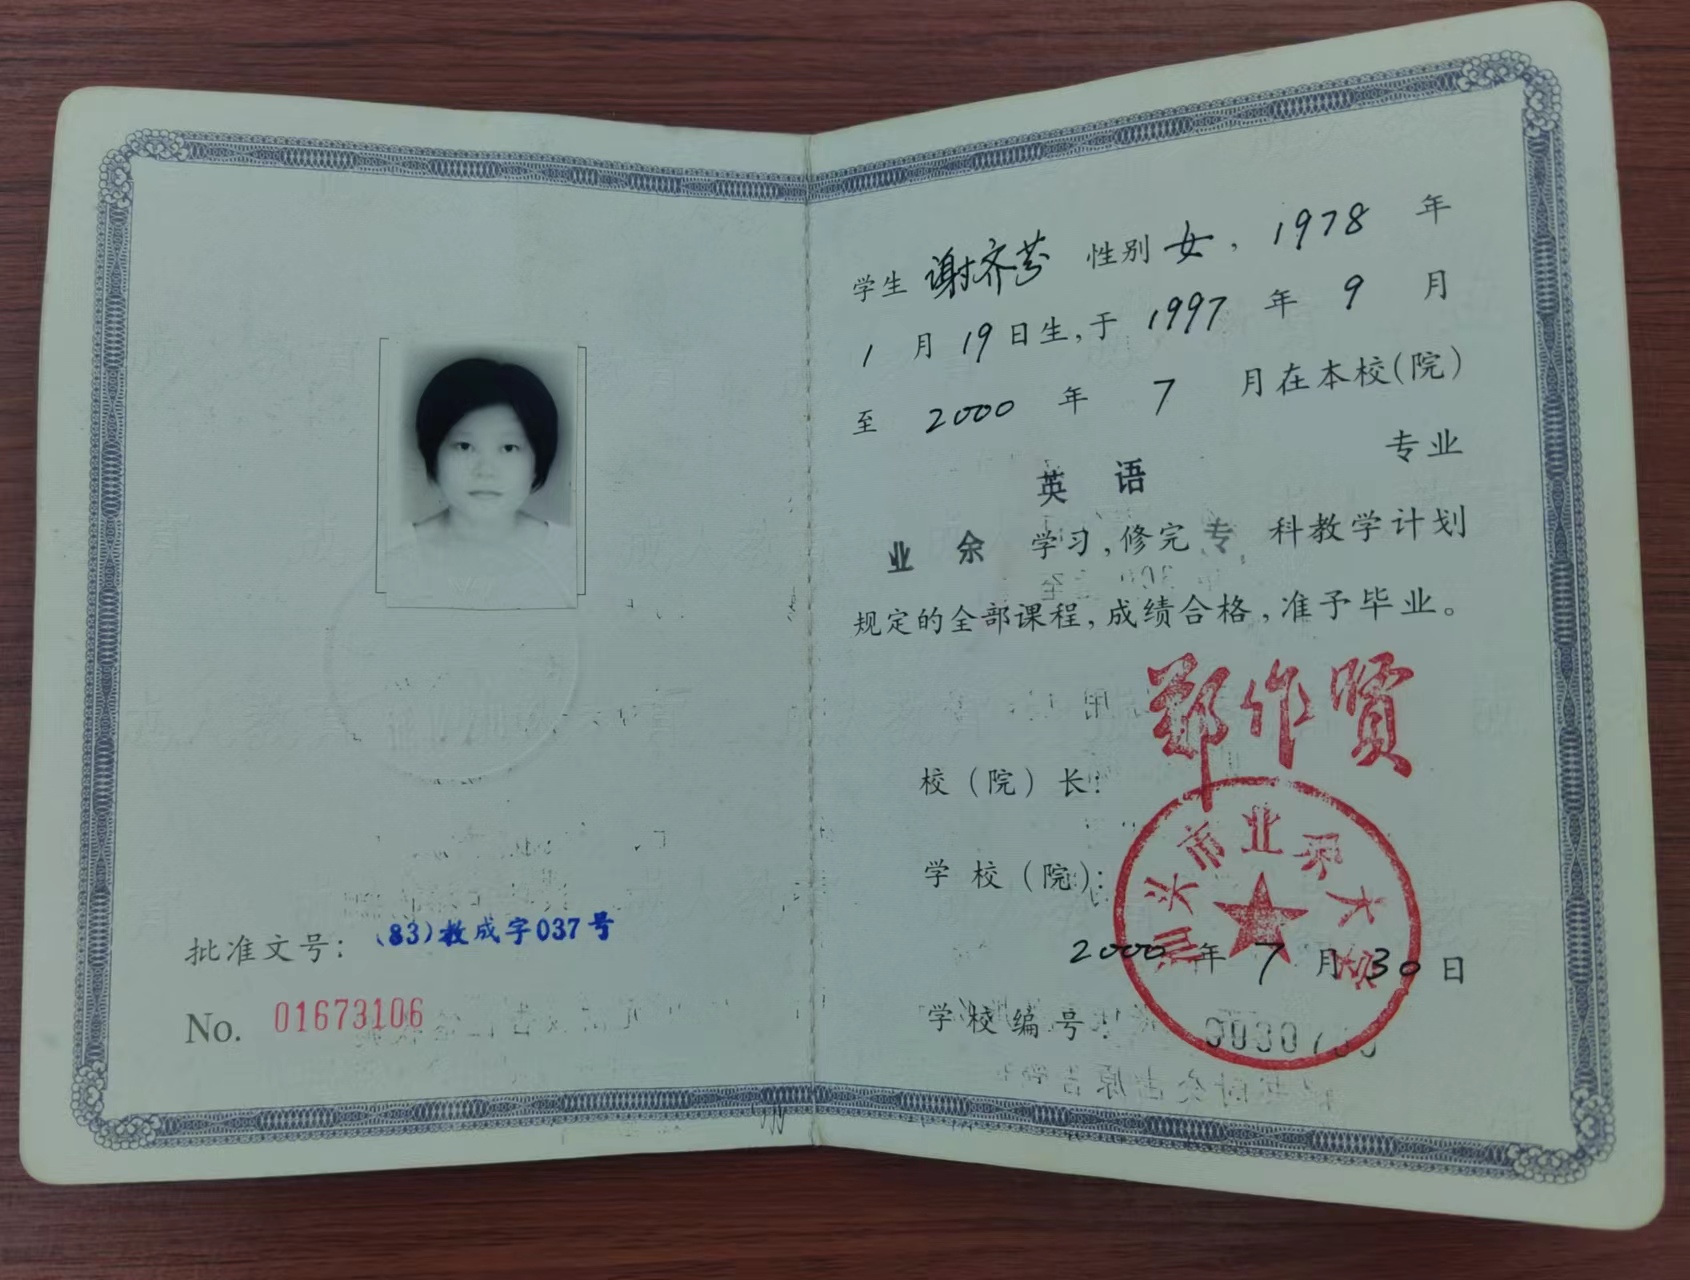 批准文号：(83)教成字037号
No. 01673106
学生 谢齐芬 性别 女，1978 年
1 月 19 日生，于 1997 年 9 月
至 2000 年 7 月在本校(院)
英语 专业
业余 学习，修完 专 科教学计划
规定的全部课程，成绩合格，准予毕业。
郑作贤
校（院）长：
学校（院）：
汕头市业余大学
2000 年 7 月 30 日
学校编号：